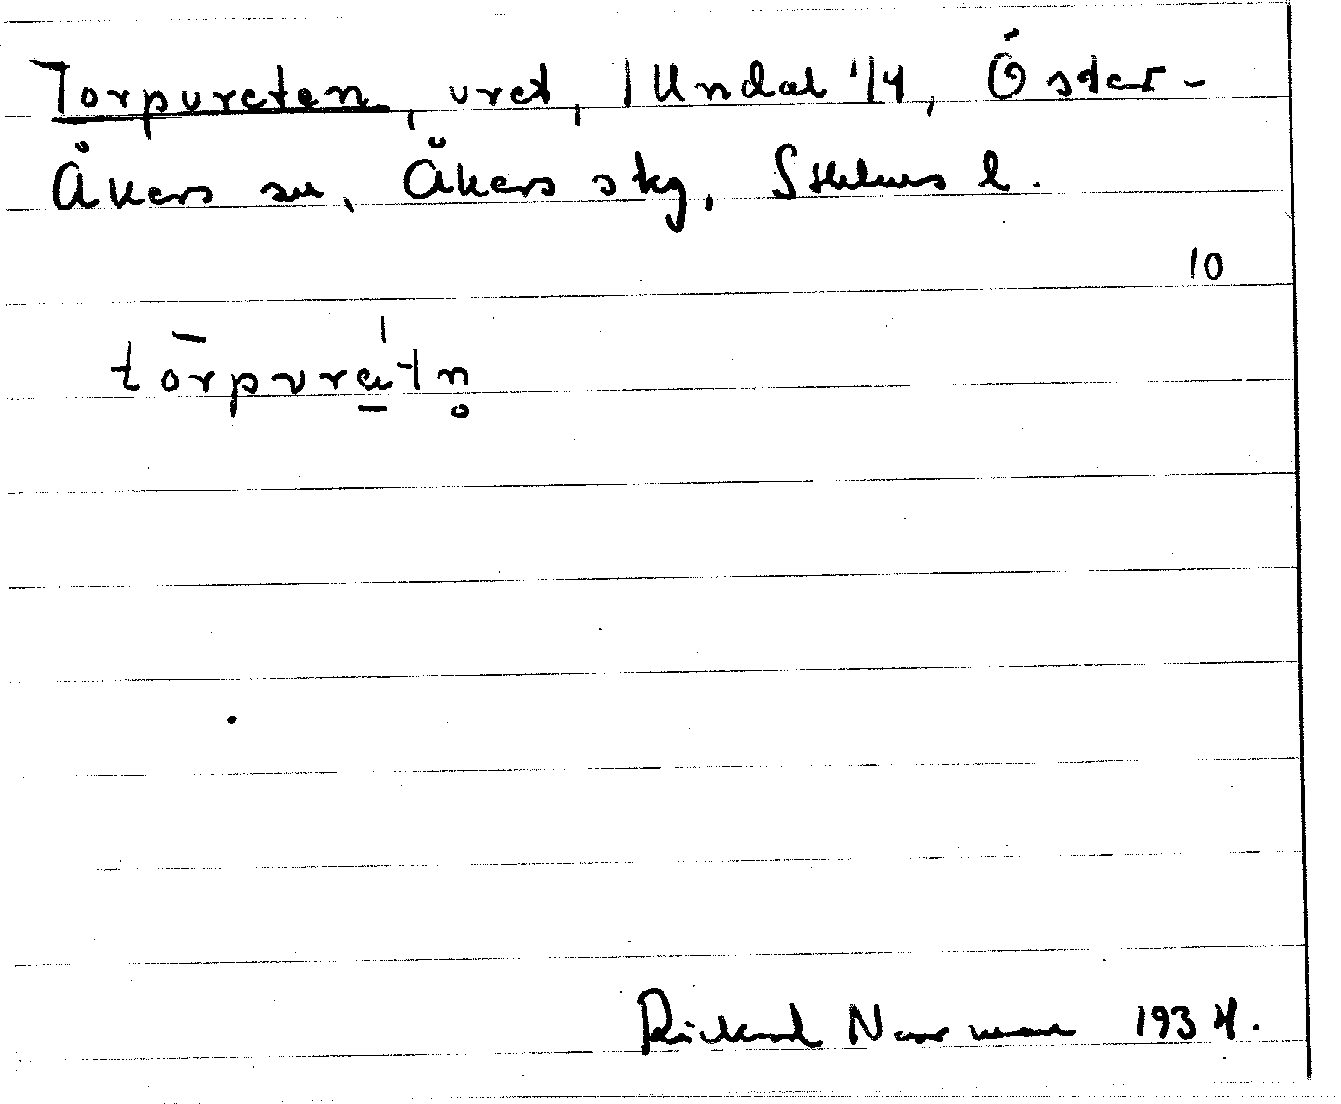 Torpvreten, vret, 1 Undal 1/4, Öster-
Åkers sn, Åkers skg, Sthlms l.
10
tōrpvre̱'tn̥
Rickard Norrman 1934.